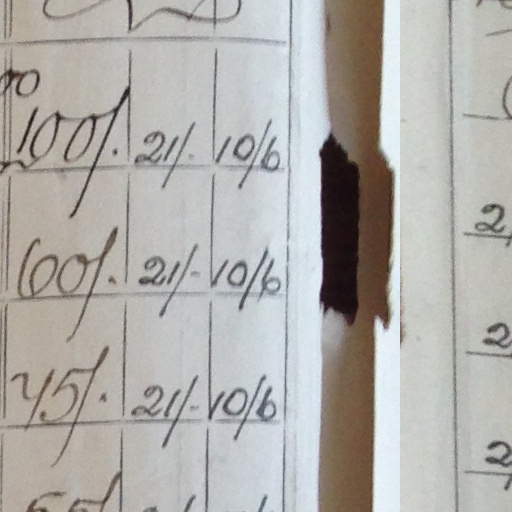 100/. 21/- 10/6
60/. 21/- 10/6
45/. 21/- 10/6
2
2
2